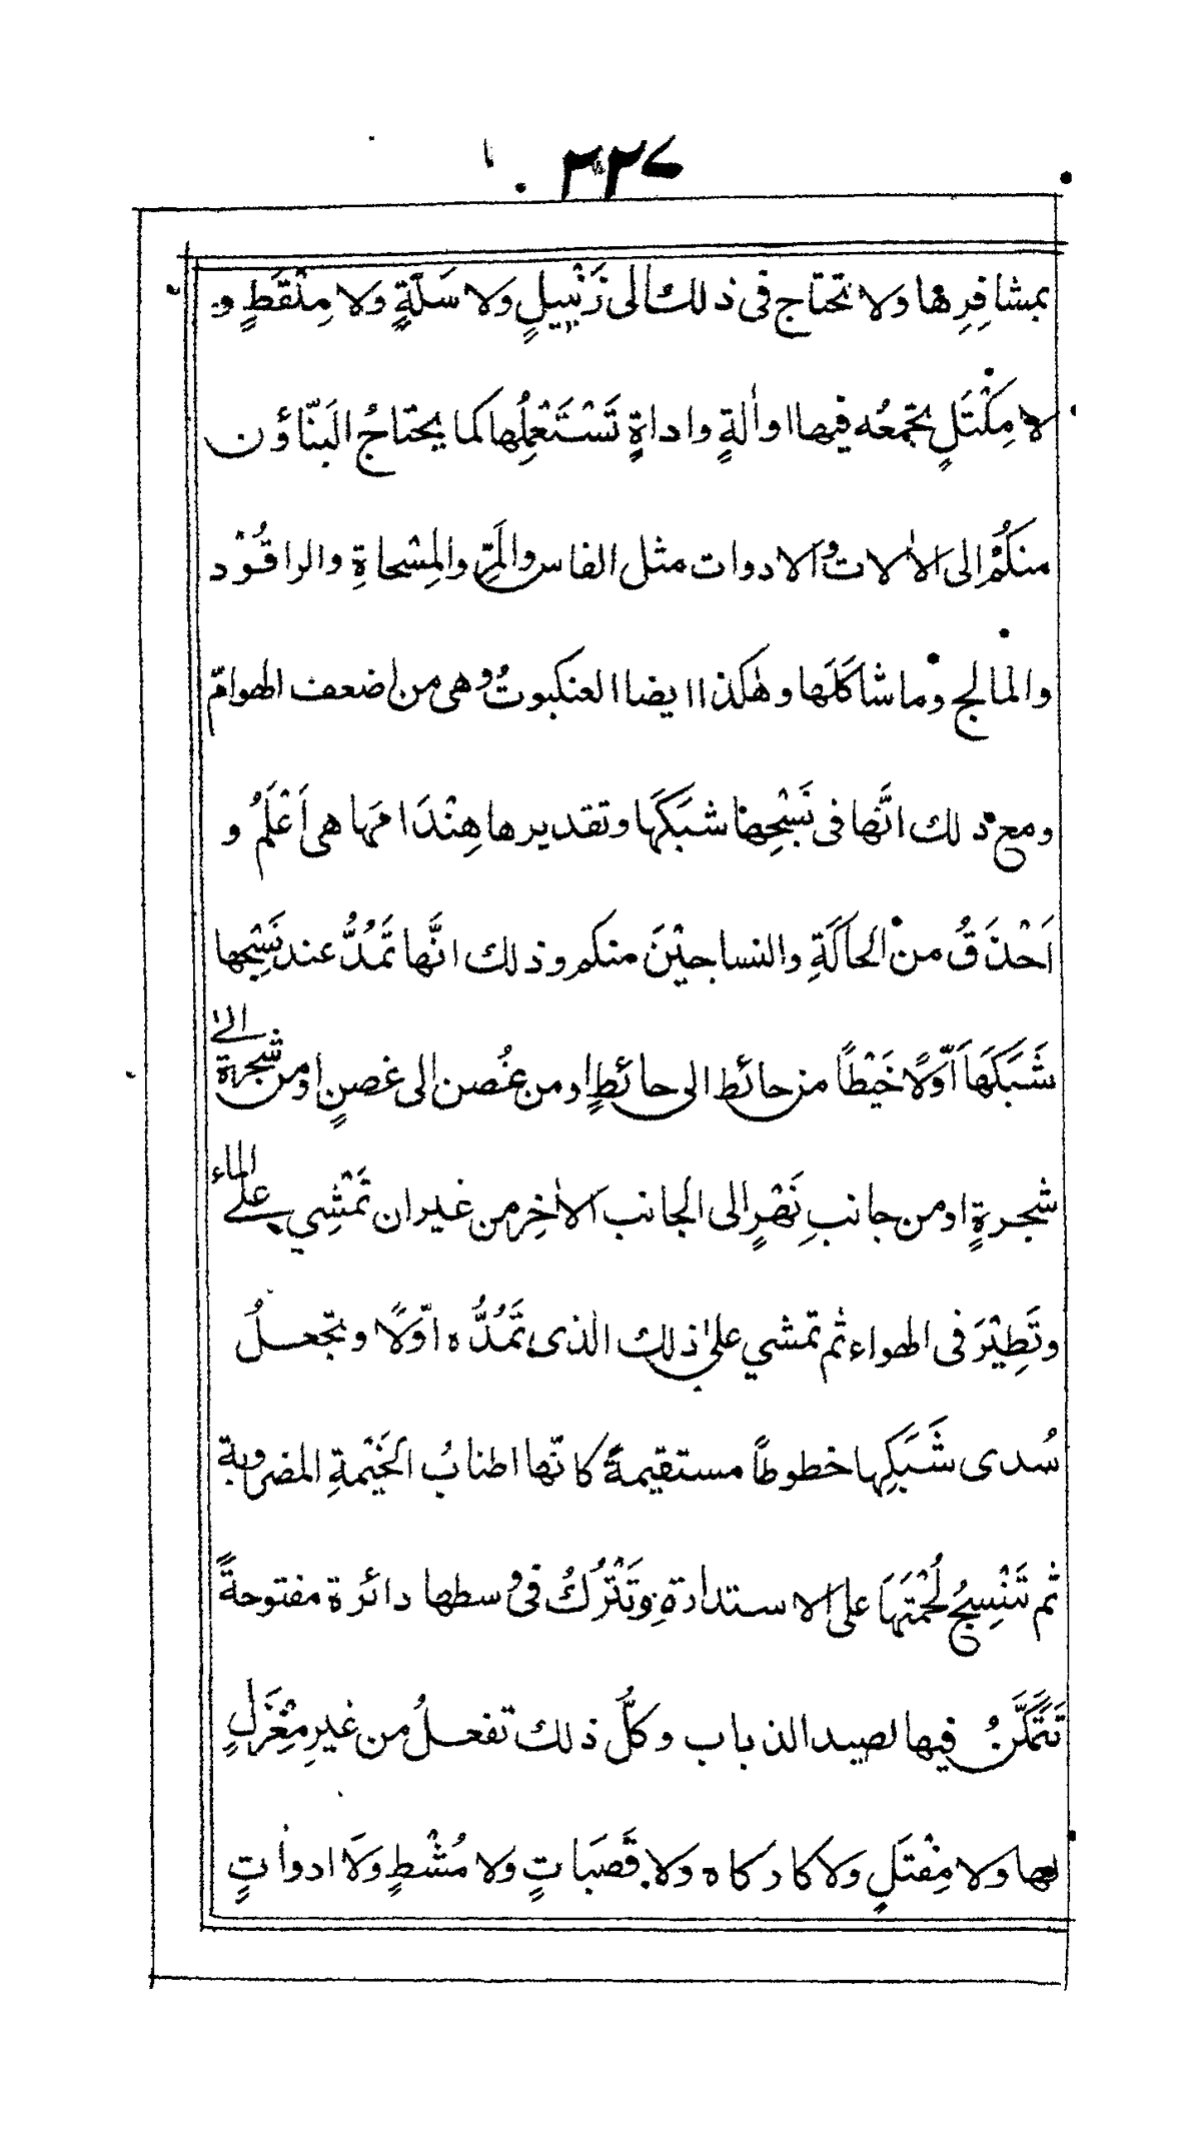 ٣٢٧
بمشافِرِها ولا تحتاج فى ذلك الى زَنْبِيلٍ ولا سَلّةٍ ولا مِلْقَطٍ و
لا مِكْتَلٍ تجمعُه فيها او اٰلةٍ واداةٍ تَسْتَعْمِلُها كما يحتاجُ البَنّاؤن
منكُمْ الى الاٰلات والادوات مثل الفاس والمَرِّ والمِسْحاةِ والراقُوْد
والمالج وما شاكَلَها وهٰكذا ايضا العنكبوتُ وهى من اضعف الهوامّ
ومع ذلك انَّها فى نَسْجِها شَبَكَها وتقديرها هِنْدَامَها هى اَعْلَمُ و
اَحْذَقُ من الحاكَةِ والنساجيْنَ منكم وذلك انَّها تَمُدُّ عند نَسْجِها
شَبَكَهَا اَوّلًا خَيْطًا من حائط الى حائطٍ او من غُصن الى غصنٍ او من شجرة الى
شجرةٍ او من جانبِ نَهْرٍ الى الجانب الاٰخِر من غير ان تَمْشِي على الماء
وتَطِيْرَ فى الهواء ثم تمشي على ذلك الذى تَمُدُّه اوّلًا وتجعلُ
سُدى شَبَكِها خطوطًا مستقيمةً كانّها اطنابُ الخَيْمةِ المضروبة
ثم تَنْسِجُ لُحْمَتَهَا على الاستدارةِ وتَتْرُكُ فى وسطها دائرة مفتوحةً
تَتَمَكَّنُ فيها لصيد الذباب وكلُّ ذلك تفعلُ من غيرِ مِغْزَلٍ
لها ولا مِفْتَلٍ ولا كاركاه ولا قَصَبَاتٍ ولا مُشْطٍ ولَا ادواتٍ